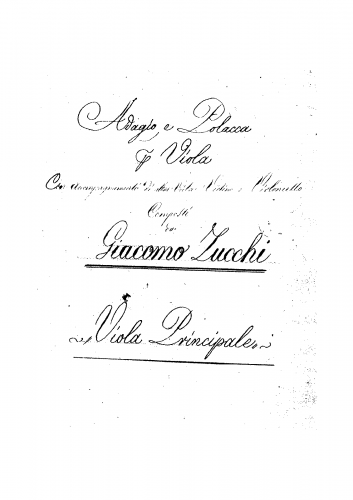 Adagio e Polacca
p Viola
Con accompagnamento di altra Viola Violino e Violoncello
Composti
da
Giacomo Zucchi
Viola Principale